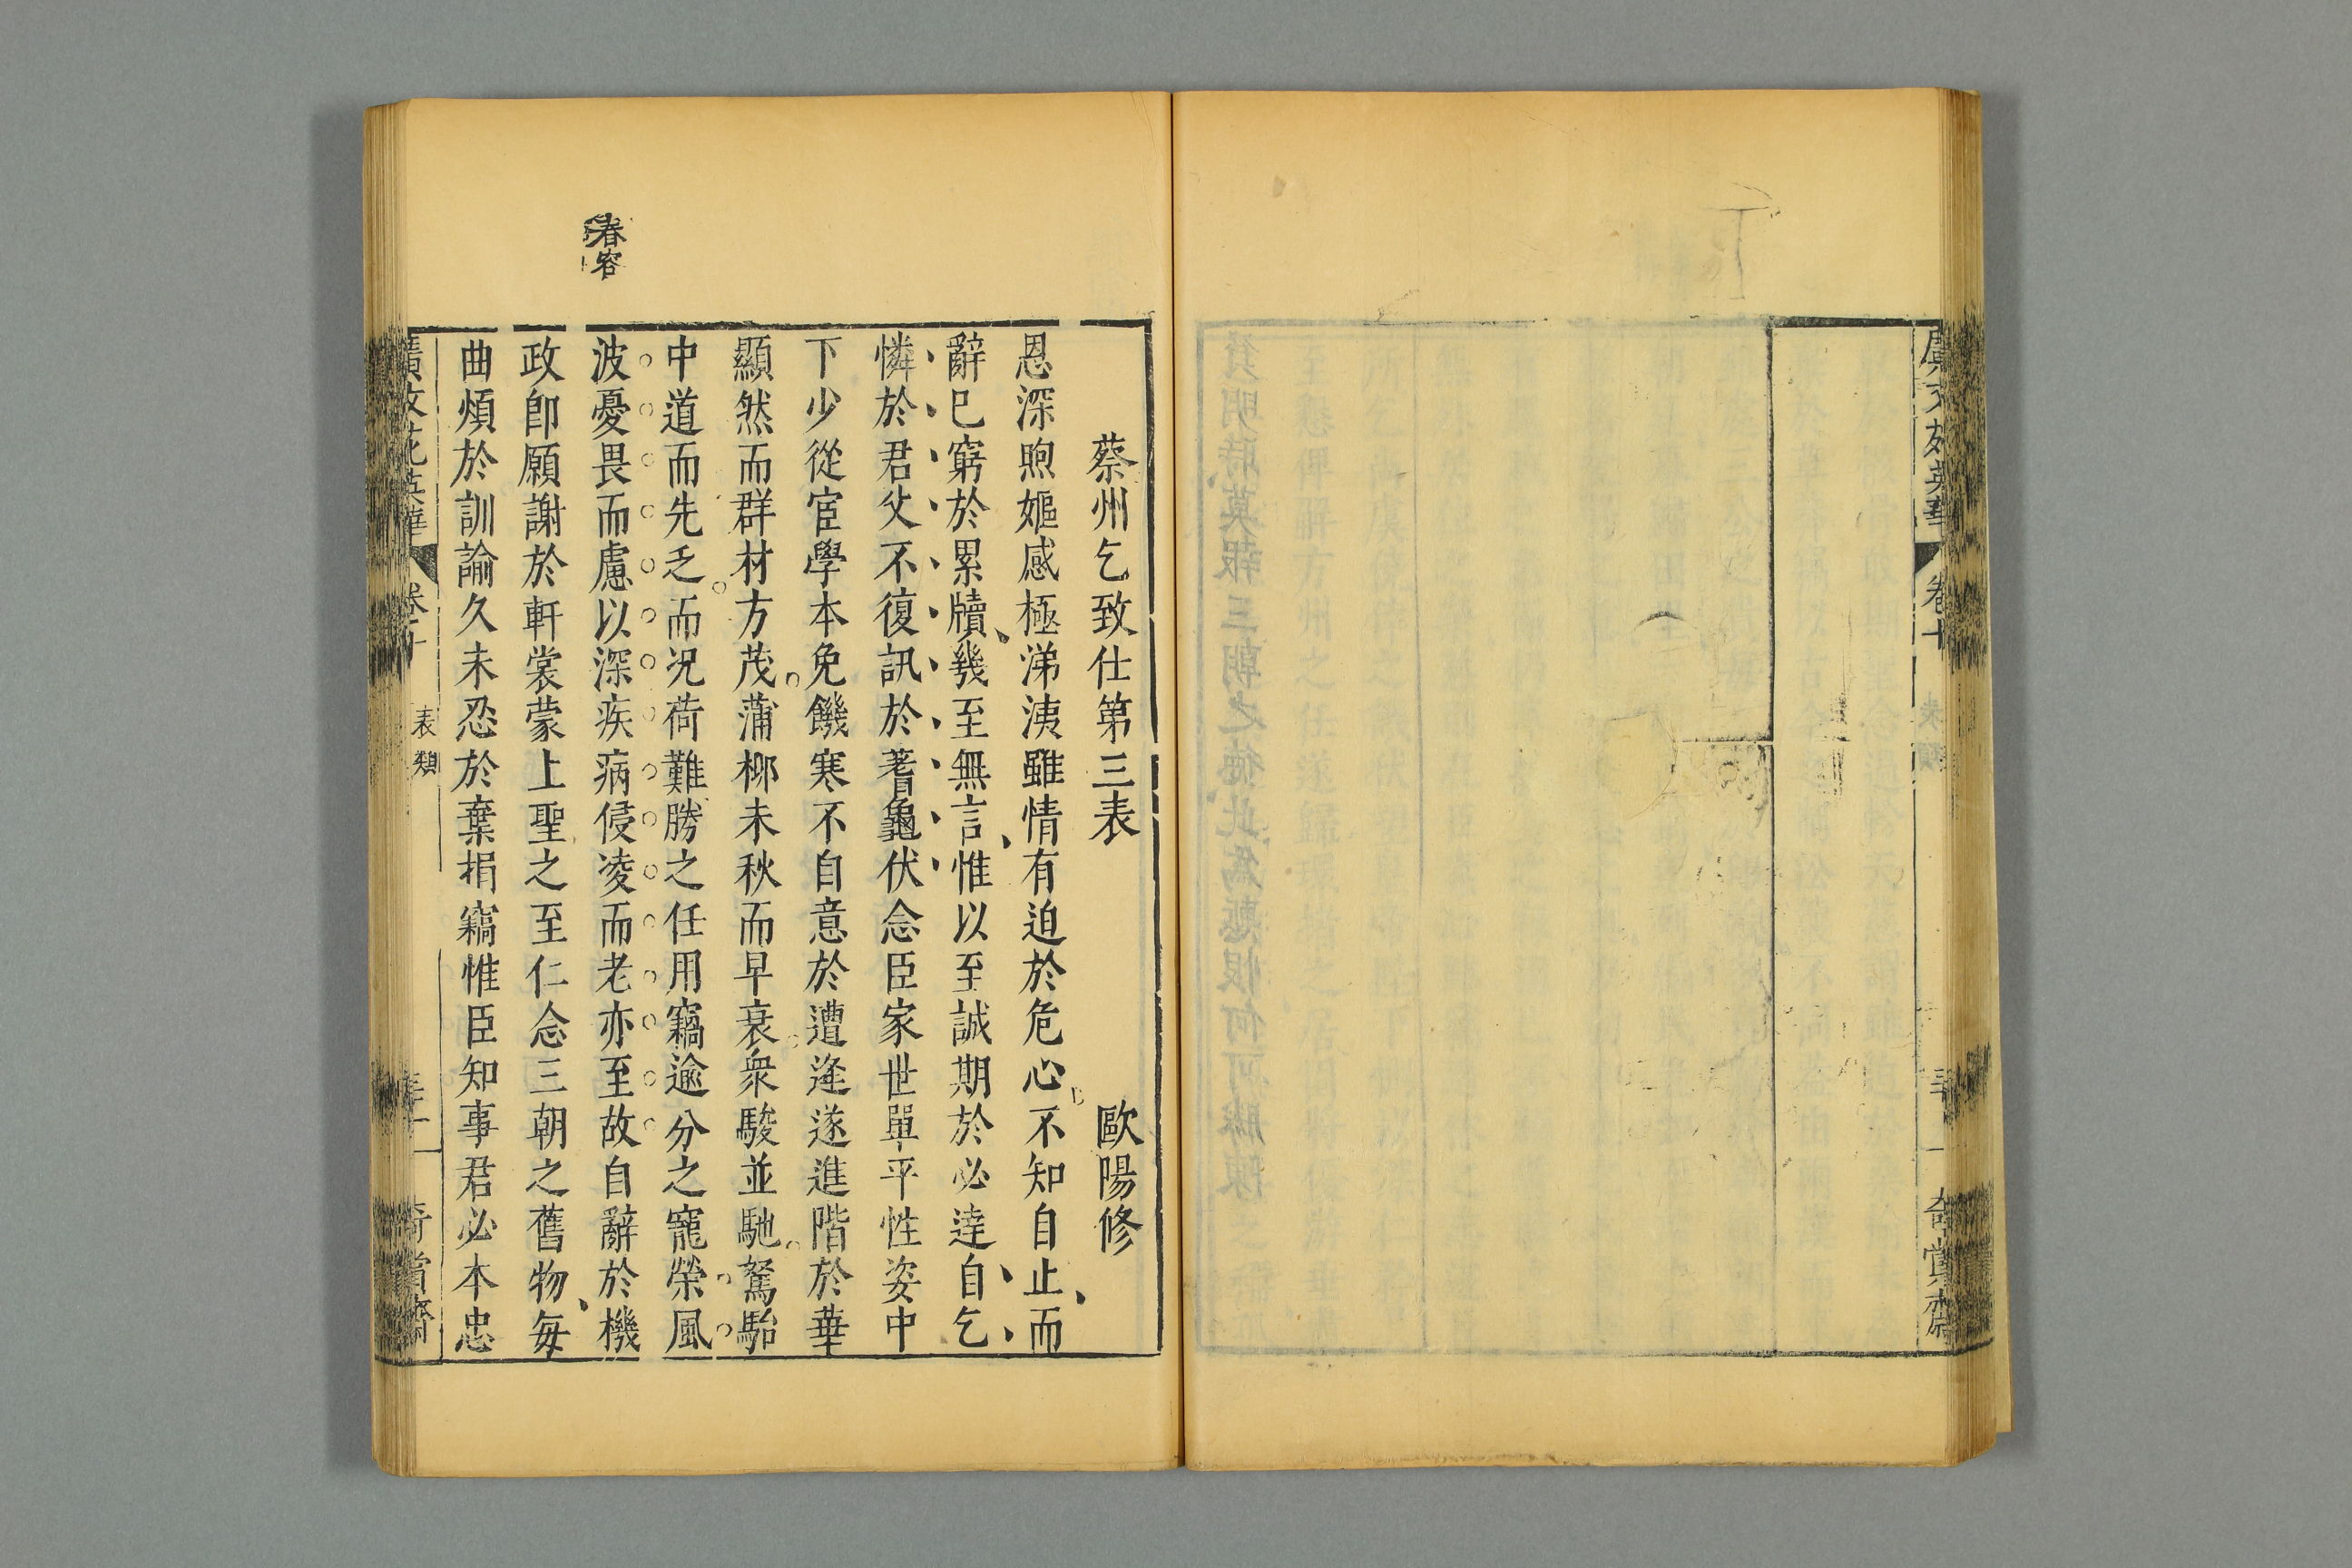 蔡州乞致仕第三表 歐陽修
恩深煦嫗感極涕洟雖情有迫於危心不知自止而
辭已窮於累牘幾至無言惟以至誠期於必達自乞
憐於君父不復訊於蓍龜伏念臣家世單平性姿中
下少從宦學本免饑寒不自意於遭逢遂進階於華
顯然而群材方茂蒲柳未秋而早衰衆駿並馳駑駘
中道而先乏而况荷難勝之任用竊逾分之寵榮風
波憂畏而慮以深疾病侵凌而老亦至故自辭於機
政卽願謝於軒裳蒙上聖之至仁念三朝之舊物每
曲煩於訓諭久未忍於棄捐竊惟臣知事君必本忠
春容
廣文苑英華 卷十 表類 奇賞齋